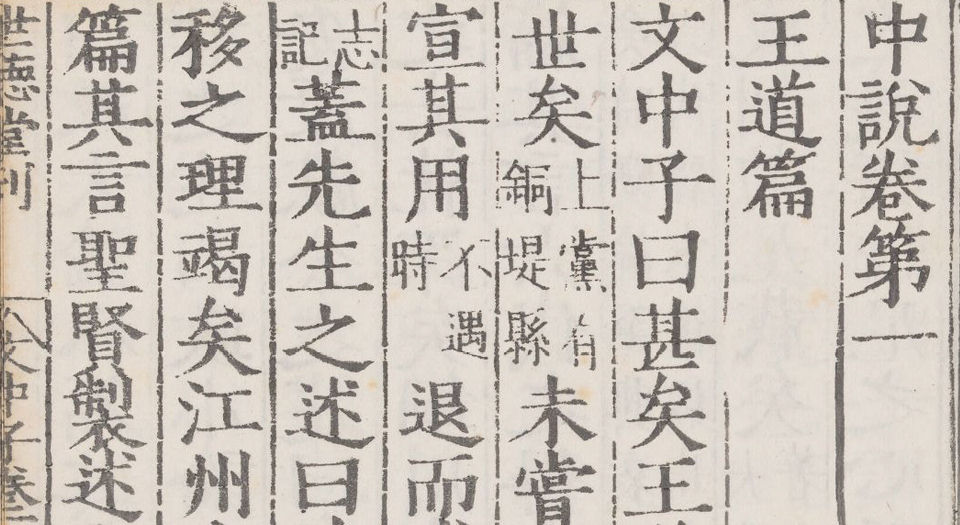 中說卷第一
王道篇
文中子曰甚矣王
世矣上黨有銅堤縣未嘗
宣其用不遇時退而
志記蓋先生之述曰
移之理竭矣江州
篇其言聖賢製述
世德堂刊 文中子卷